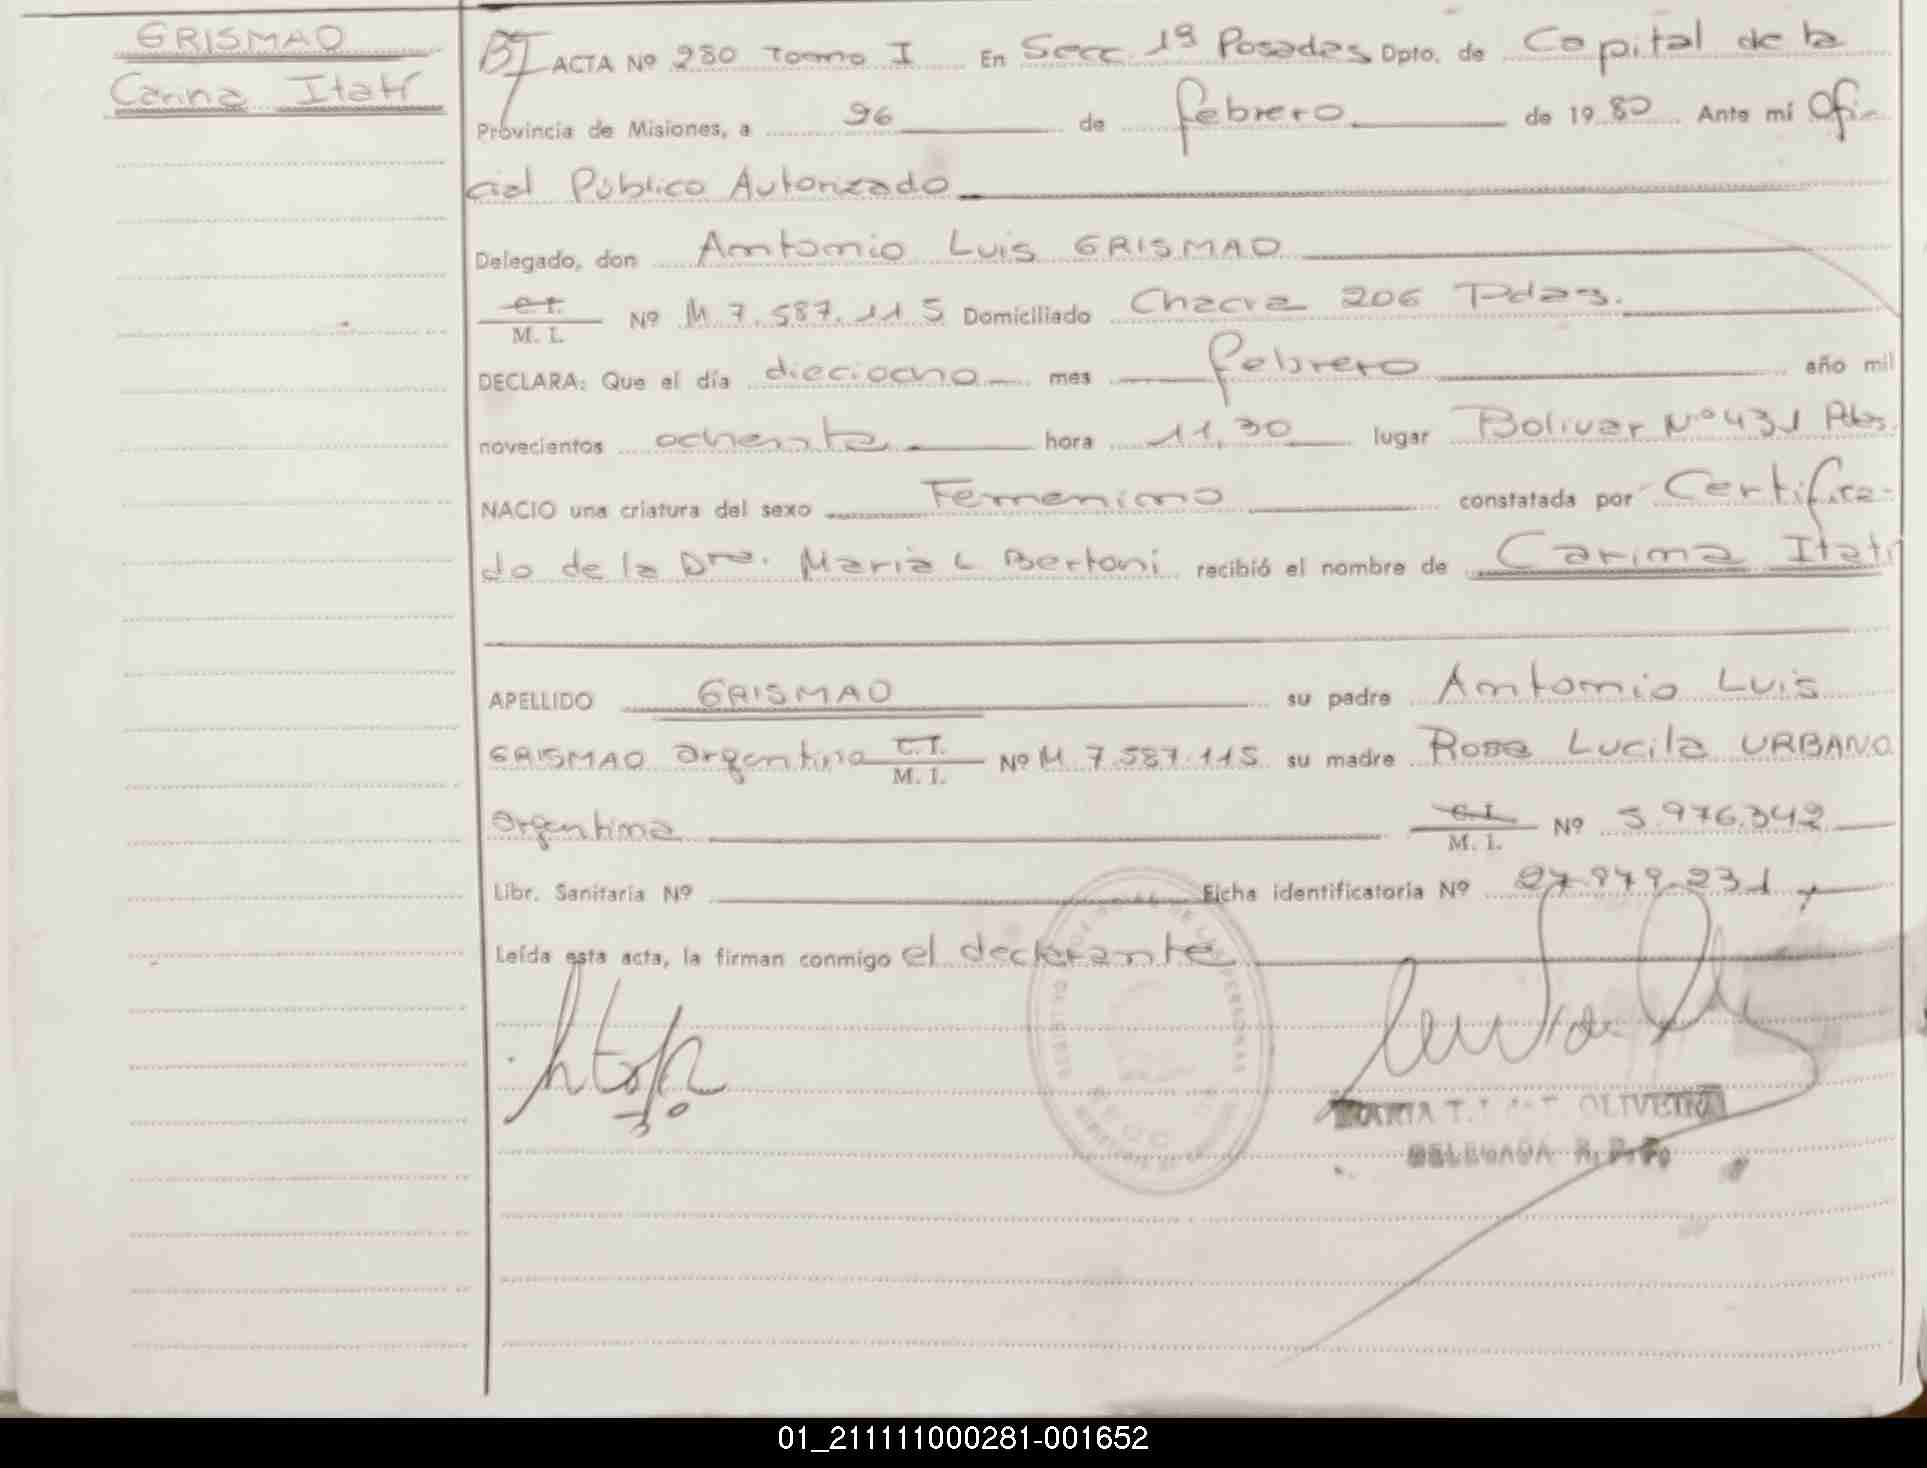 GRISMAO
Carina Itatí
BJ ACTA Nº 280 Tomo I En Secc. 1ª Posadas Dpto. de Capital de la
Provincia de Misiones, a 26 de febrero de 1980 Ante mí Ofi-
cial Público Autorizado
Delegado, don Antonio Luis GRISMAO
C. I.
M. I. Nº M 7.587.115 Domiciliado Chacra 206 Pdas.
DECLARA: Que el día dieciocho mes febrero año mil
novecientos ochenta hora 11,30 lugar Bolivar Nº 431 Pdas.
NACIO una criatura del sexo Femenino constatada por Certifica-
do de la Dra. Maria L Bertoni recibió el nombre de Carina Itatí
APELLIDO GRISMAO su padre Antonio Luis
GRISMAO argentino C. I.
M. I. Nº M 7.587.115 su madre Rosa Lucila URBANO
argentina C. I.
M. I. Nº 5.976.342
Libr. Sanitaria Nº Ficha identificatoria Nº 27.979.231
Leída esta acta, la firman conmigo el declarante
MARIA T. OLIVEIRA
DELEGADA R. P. P.
01_211111000281-001652